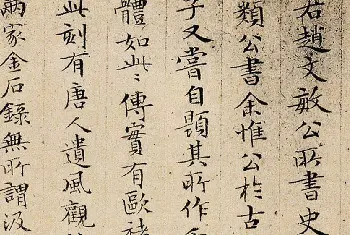 若趙文敏公所書史
類公書余惟公於古
子又嘗自題其所作
體如此〻傳實有歐
此刻有唐人遺風觀
兩家金石錄無所謂汲